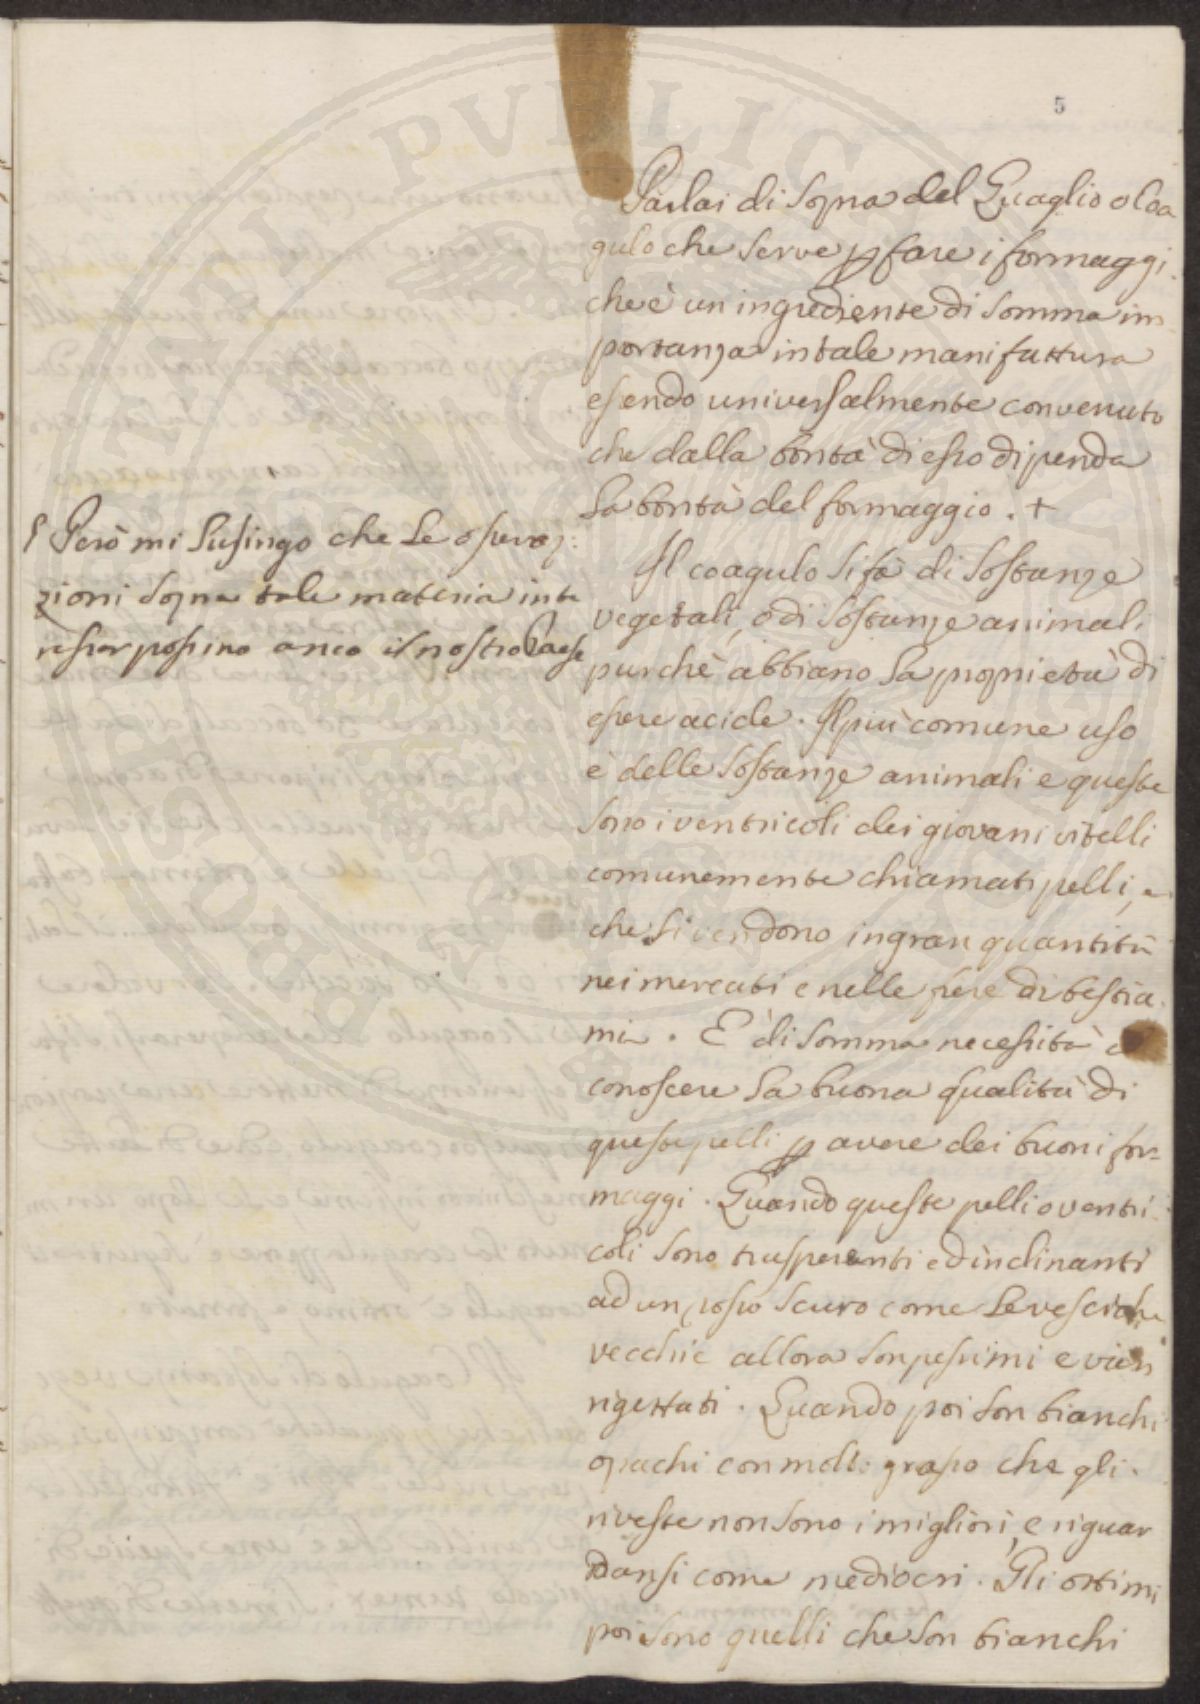 5
Parlai di sopra del Quaglio o Coa
gulo che serve p fare i formaggi
che è un ingrediente di somma im
portanza in tale manifattura
essendo universalmente convenuto
che dalla bontà di esso dipenda
la bontà del formaggio . +
Però mi lusingo che le osserva:
zioni sopra tale materia inte
ressar possino anco il nostro Paese
Il coagulo si fà di sostanze
vegetali, o di sostanze animali
purchè abbiano la proprietà di
essere acide . Il più comune uso
è delle sostanze animali e queste
sono i ventricoli dei giovani vitelli
comunemente chiamati pelli, e
che si vendono in gran quantità
nei mercati e nelle fiere di bestia
mi . È di somma necessità
conoscere la buona qualità di
queste pelli p avere dei buoni for=
maggi . Quando queste pelli o ventri
coli sono trasparenti ed inclinanti
ad un rosso scuro come le vesciche
vecchie allora son pessimi e vien
rigettati . Quando poi son bianchi
opachi con molto grasso che gli
riveste non sono i migliori, e riguar
dansi come mediocri . Gli ottimi
poi sono quelli che son bianchi
PVBLIC